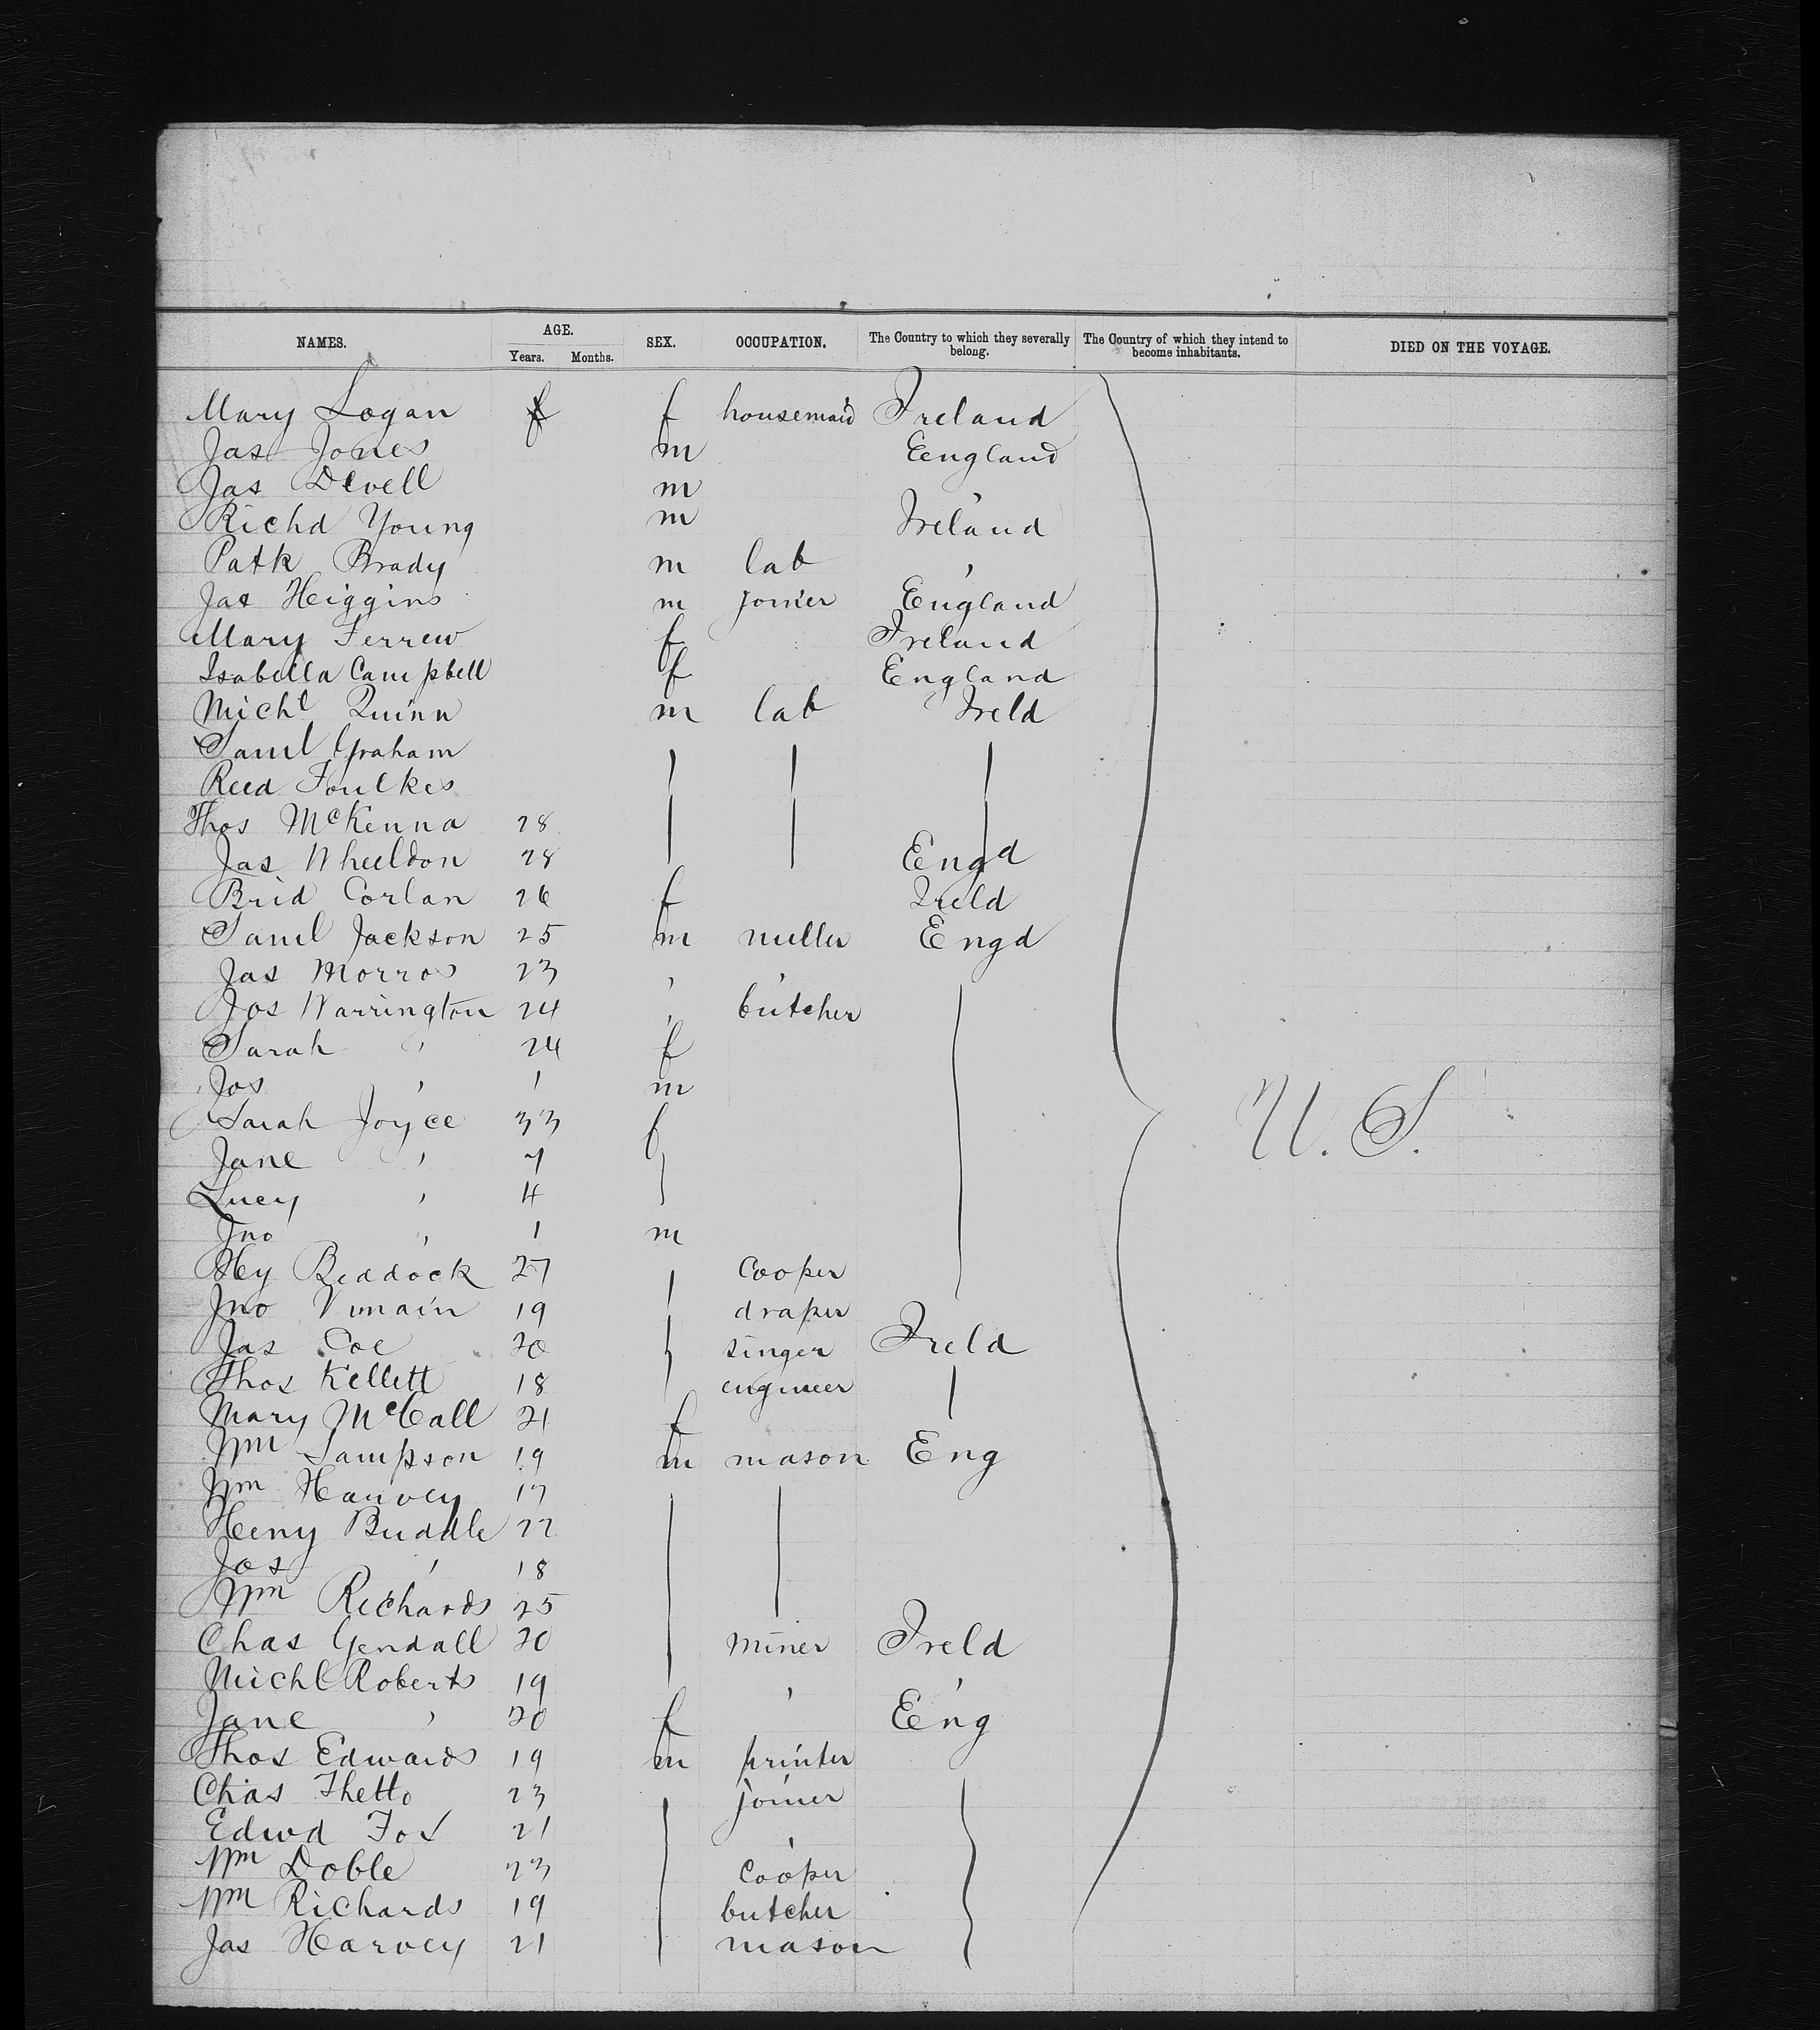 NAMES. AGE. SEX. OCCUPATION. The Country to which they severally belong. The Country of which they intend to become inhabitants. DIED ON THE VOYAGE.
Years. Months.
Mary Logan f f housemaid Ireland
Jas Jones m England
Jas Devell m "
Richd Young m Ireland
Patk Brady m lab "
Jas Higgins m joiner England
Mary Ferrew f Ireland
Isabella Campbell f England
Michl Quinn m lab Ireld
Saml Graham
Reed Foulkes
Thos McKenna 28
Jas Wheeldon 28 Engd
Brid Corlan 26 f Ireld
Saml Jackson 25 m miller Engd
Jas Morros 23 " "
Jos Warrington 24 " butcher
Sarah " 24 f
Jos " 1 m
U. S.
Sarah Joyce 33 f
Jane " 7
Lucy " 4
Jno " 1 m
Hy Beddock 27 cooper
Jno 19 draper
Jas Coe 20 singer Ireld
Thos Kellett 18 engineer
Mary McCall 21 f
Wm Sampson 19 m mason Eng
Wm Harvey 17
Heny Buddle 22
Jos " 18
Wm Richards 25
Chas Gendall 20 miner Ireld
Michl Roberts 19 " "
Jane " 20 f Eng
Thos Edwards 19 m printer
Chas Thetto 23 joiner
Edwd Fox 21 "
Wm Doble 23 cooper
Wm Richards 19 butcher
Jas Harvey 21 mason